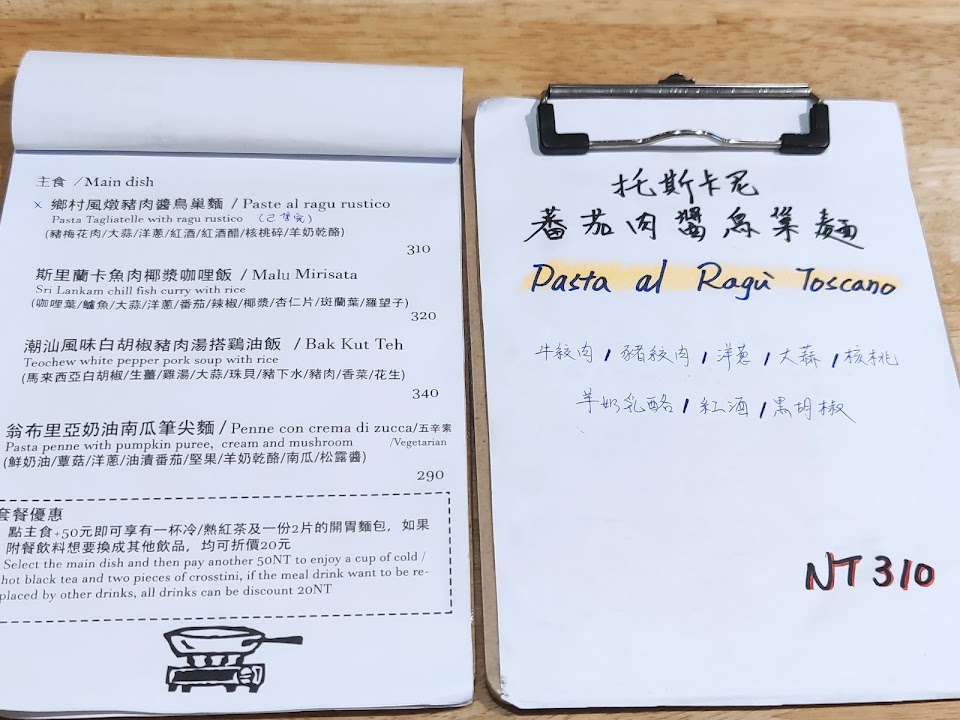 主食 /Main dish
x 鄉村風燉豬肉醬鳥巢麵 / Paste al ragu rustico
Pasta Tagliatelle with ragu rustico (已售完)
(豬梅花肉/大蒜/洋蔥/紅酒/紅酒醋/核桃碎/羊奶乾酪)
310
斯里蘭卡魚肉椰漿咖哩飯 / Malu Mirisata
Sri Lankam chill fish curry with rice
(咖哩葉/鱸魚/大蒜/洋蔥/番茄/辣椒/椰漿/杏仁片/斑蘭葉/羅望子)
320
潮汕風味白胡椒豬肉湯搭鷄油飯 / Bak Kut Teh
Teochew white pepper pork soup with rice
(馬來西亞白胡椒/生薑/雞湯/大蒜/珠貝/豬下水/豬肉/香菜/花生)
340
翁布里亞奶油南瓜筆尖麵 / Penne con crema di zucca/五辛素
Pasta penne with pumpkin puree, cream and mushroom /Vegetarian
(鮮奶油/蕈菇/洋蔥/油漬番茄/堅果/羊奶乾酪/南瓜/松露醬)
290
套餐優惠
點主食+50元即可享有一杯冷/熱紅茶及一份2片的開胃麵包，如果
附餐飲料想要換成其他飲品，均可折價20元
Select the main dish and then pay another 50NT to enjoy a cup of cold /
hot black tea and two pieces of crosstini, if the meal drink want to be re-
placed by other drinks, all drinks can be discount 20NT
托斯卡尼
蕃茄肉醬鳥巢麵
Pasta al Ragù Toscano
牛絞肉 / 豬絞肉 / 洋蔥 / 大蒜 / 核桃
羊奶乳酪 / 紅酒 / 黑胡椒
NT 310